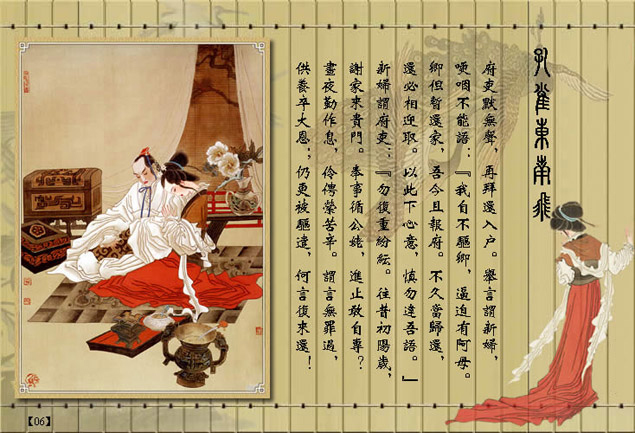 孔雀東南飛
府吏默無聲，再拜還入户。舉言謂新婦，
哽咽不能語：『我自不驅卿，逼迫有阿母。
卿但暫還家，吾今且報府。不久當歸還，
還必相迎取。以此下心意，慎勿違吾語。』
新婦謂府吏：『勿復重紛紜。往昔初陽歲，
謝家來貴門。奉事循公姥，進止敢自專？
晝夜勤作息，伶俜縈苦辛。謂言無罪過，
供養卒大恩；仍更被驅遣，何言復來還！
【06】